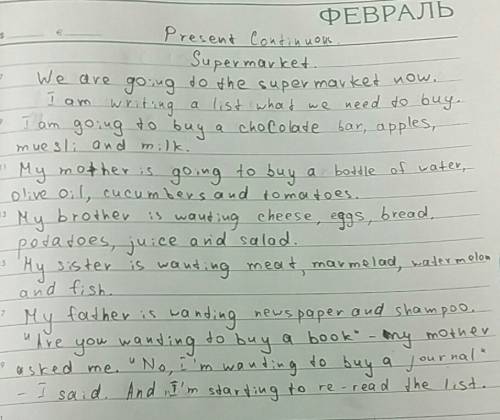 ФЕВРАЛЬ
Present Continuous.
Supermarket.
We are going to the supermarket now.
I am writing a list what we need to buy.
I am going to buy a chocolate bar, apples,
muesli and milk.
My mother is going to buy a bottle of water,
olive oil, cucumbers and tomatoes.
My brother is wanting cheese, eggs, bread,
potatoes, juice and salad.
My sister is wanting meat, marmelad, watermelon
and fish.
My father is wanting newspaper and shampoo.
"Are you wanting to buy a book" - my mother
asked me. "No, I'm wanting to buy a journal"
- I said. And, I'm starting to re-read the list.